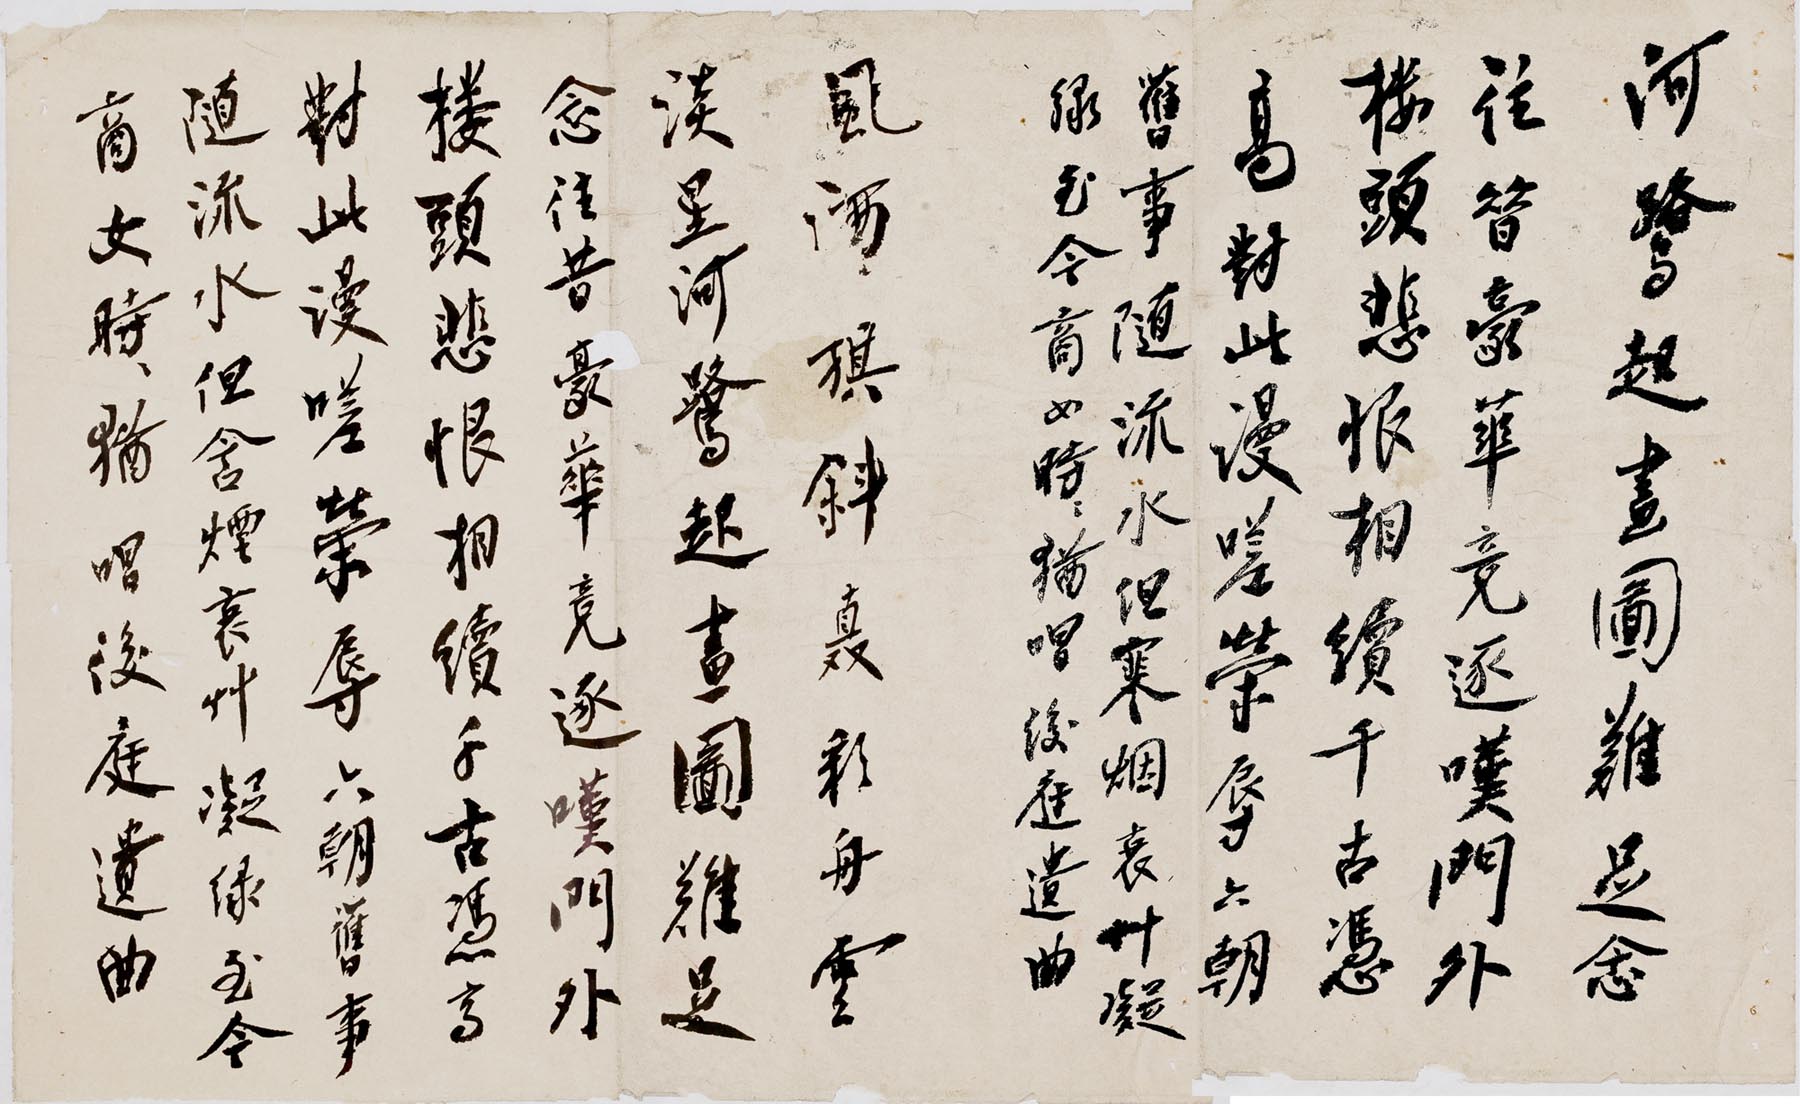 河鷺起畫圖難足念
往昔豪華竞逐嘆門外
楼頭悲恨相續千古憑
高對此漫嗟榮辱六朝
舊事随流水但寒烟衰艸凝
綠至今商女時〻猶唱後庭遺曲
風酒旗斜矗彩舟雲
淡星河鷺起畫圖難足
念往昔豪華竞逐嘆門外
楼頭悲恨相續千古憑高
對此漫嗟榮辱六朝舊事
随流水但含煙衰艸凝綠至今
商女時〻猶唱後庭遺曲